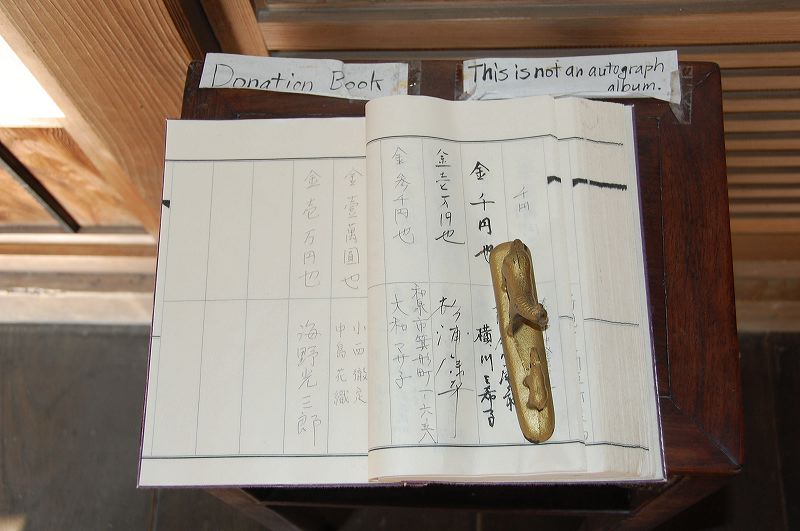 Donation Book
This is not an autograph
album.
千円
金千円也
横川
金壱万円也
杉浦
金参千円也
和泉市箕形町一ー六ー
大和マサ子
金壹萬圓也
小西徹定
中島花織
金壱万円也
海野光三郎